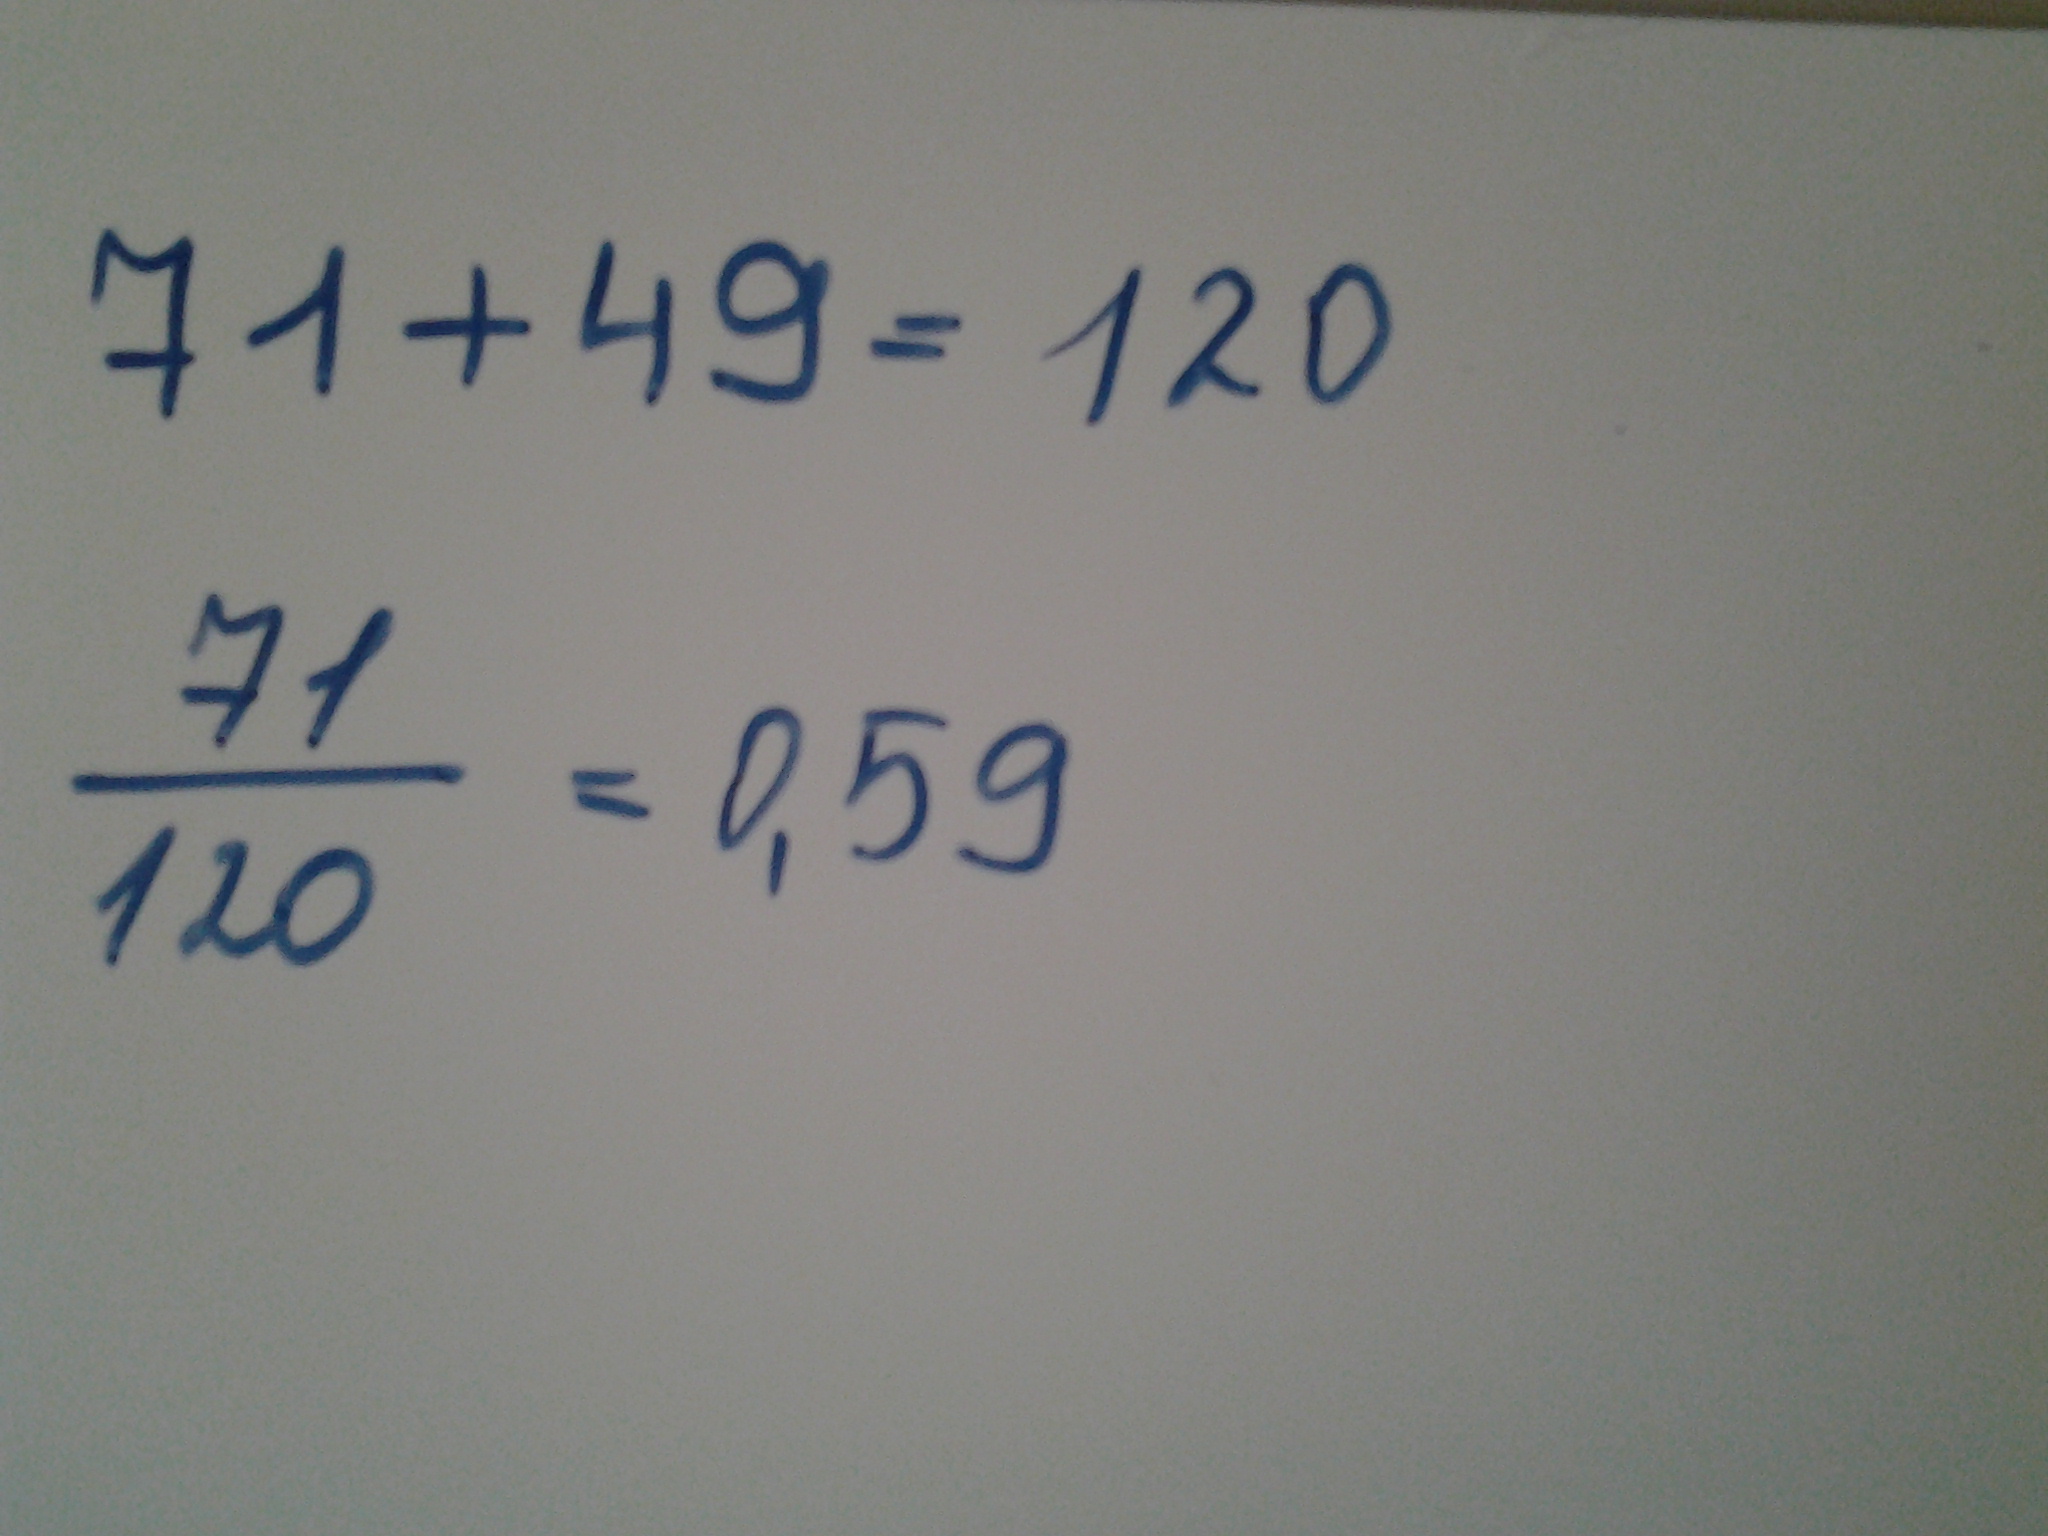 71+49=120
71/120 = 0,59